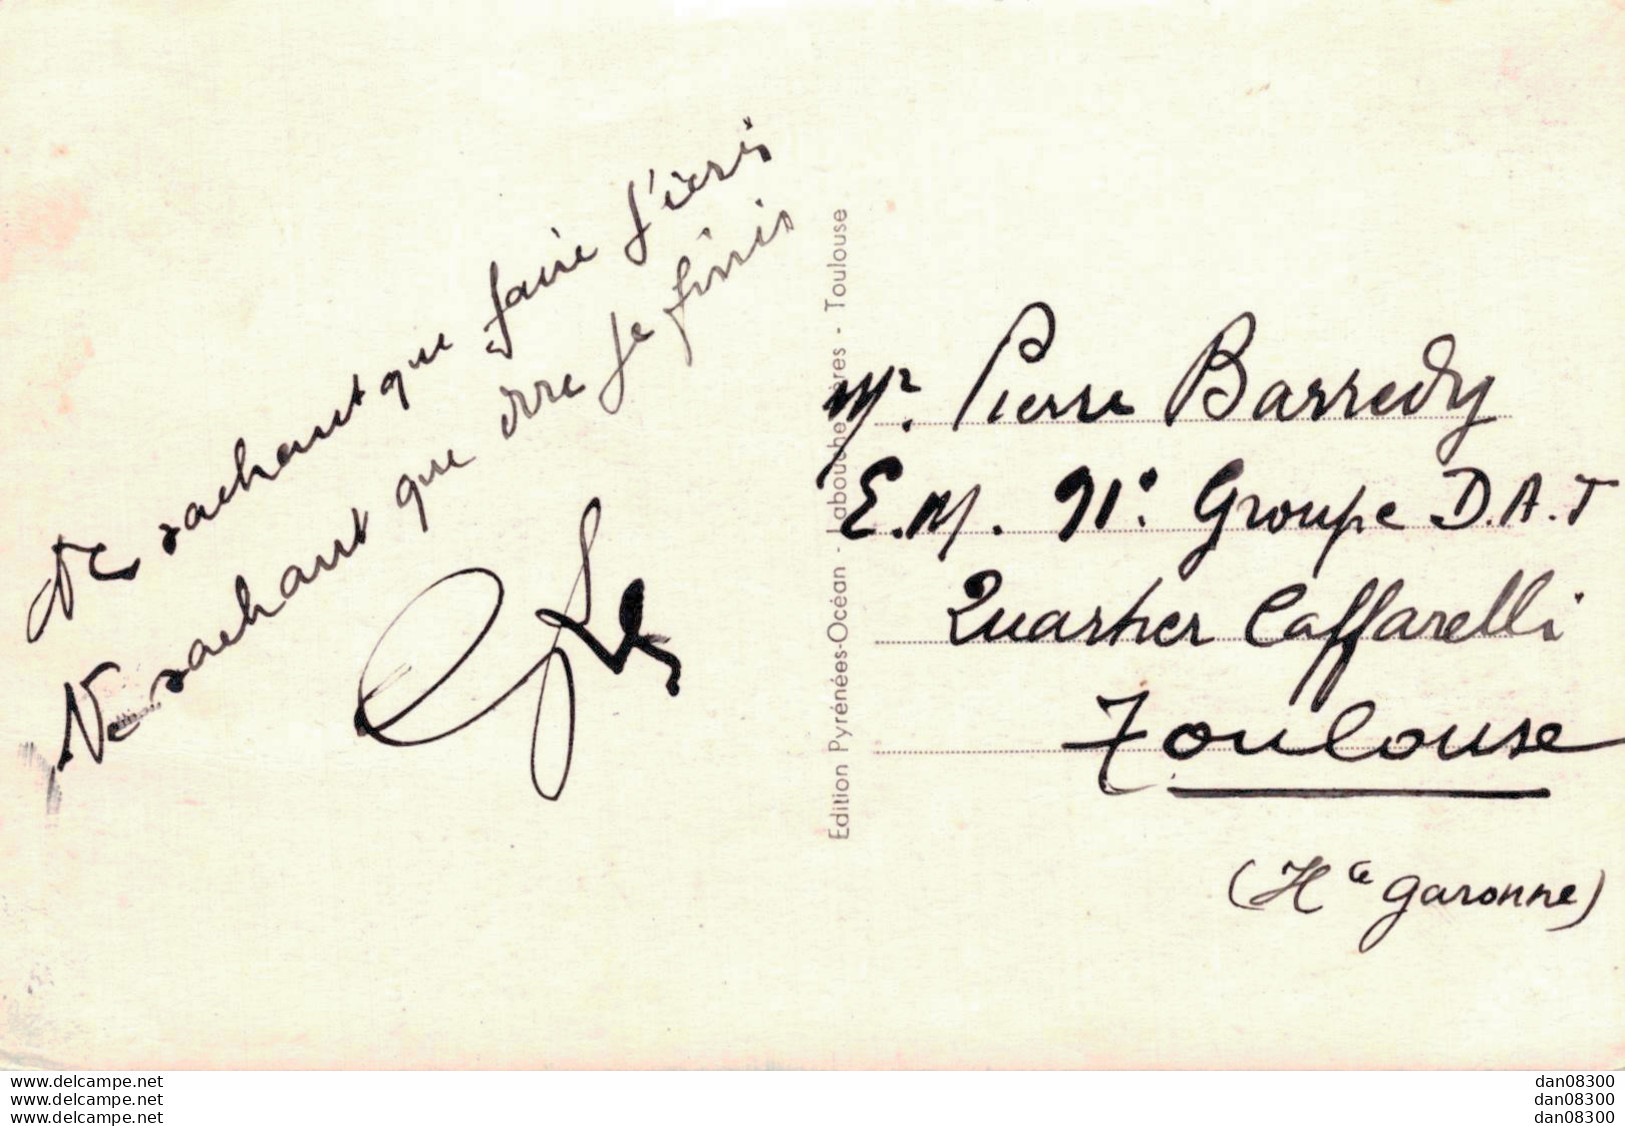 Ne sachant que faire j'écris
Ne sachant que dire je finis
Edition Pyrénées-Océan - Labouche Frères - Toulouse
Mr. Pierre Barredy
E.M. 91e. Groupe D.A.T
Quartier Caffarelli
Toulouse
(Hte Garonne)
www.delcampe.net
www.delcampe.net
www.delcampe.net
dan08300
dan08300
dan08300